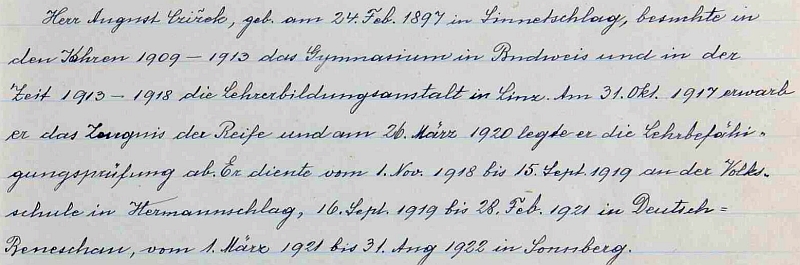 Herr August Cziřek, geb. am 24. Feb. 1897 in Sinnetschlag, besuchte in
den Jahren 1909 – 1913 das Gymnasium in Budweis und in der
Zeit 1913 – 1918 die Lehrerbildungsanstalt in Linz. Am 31. Okt. 1917 erwarb
er das Zeugnis der Reife und am 26. März 1920 legte er die Lehrbefähi-
gungsprüfung ab. Er diente vom 1. Nov. 1918 bis 15. Sept. 1919 an der Volks-
schule in Hermannschlag, 16. Sept. 1919 bis 28. Feb. 1921 in Deutsch=
Beneschau, vom 1. März 1921 bis 31. Aug 1922 in Sonnberg.